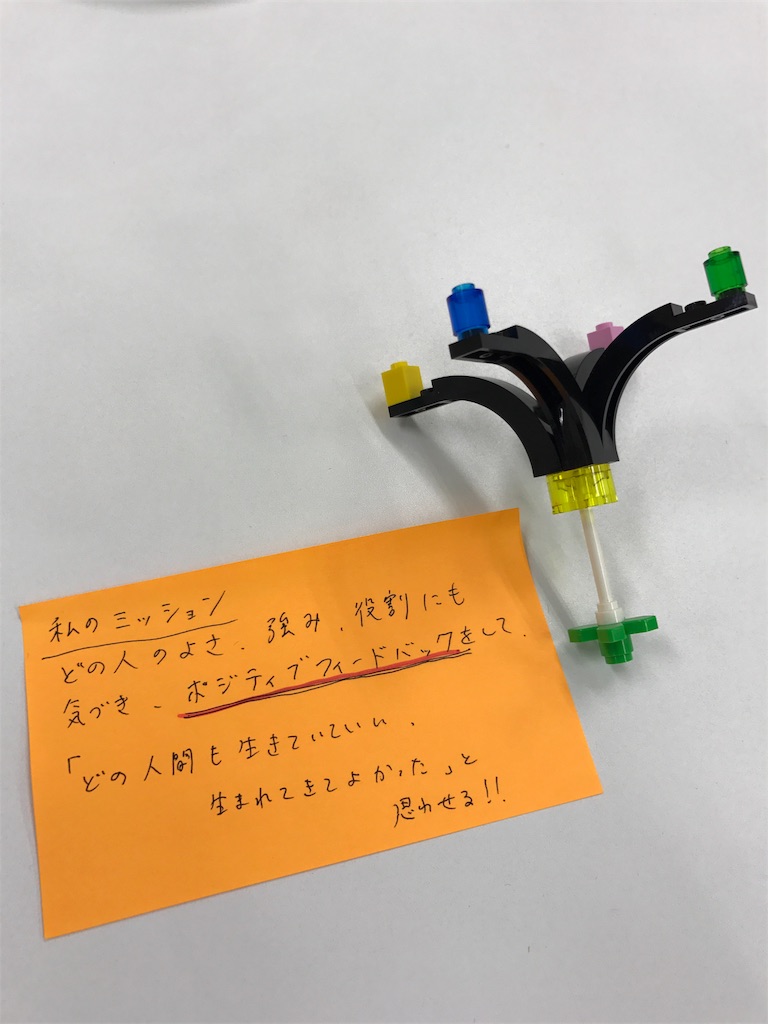 私のミッション
どの人のよさ、強み、役割にも
気づき、ポジティブフィードバックをして、
「どの人間も生きていていい、
生まれてきてよかった」と
思わせる!!